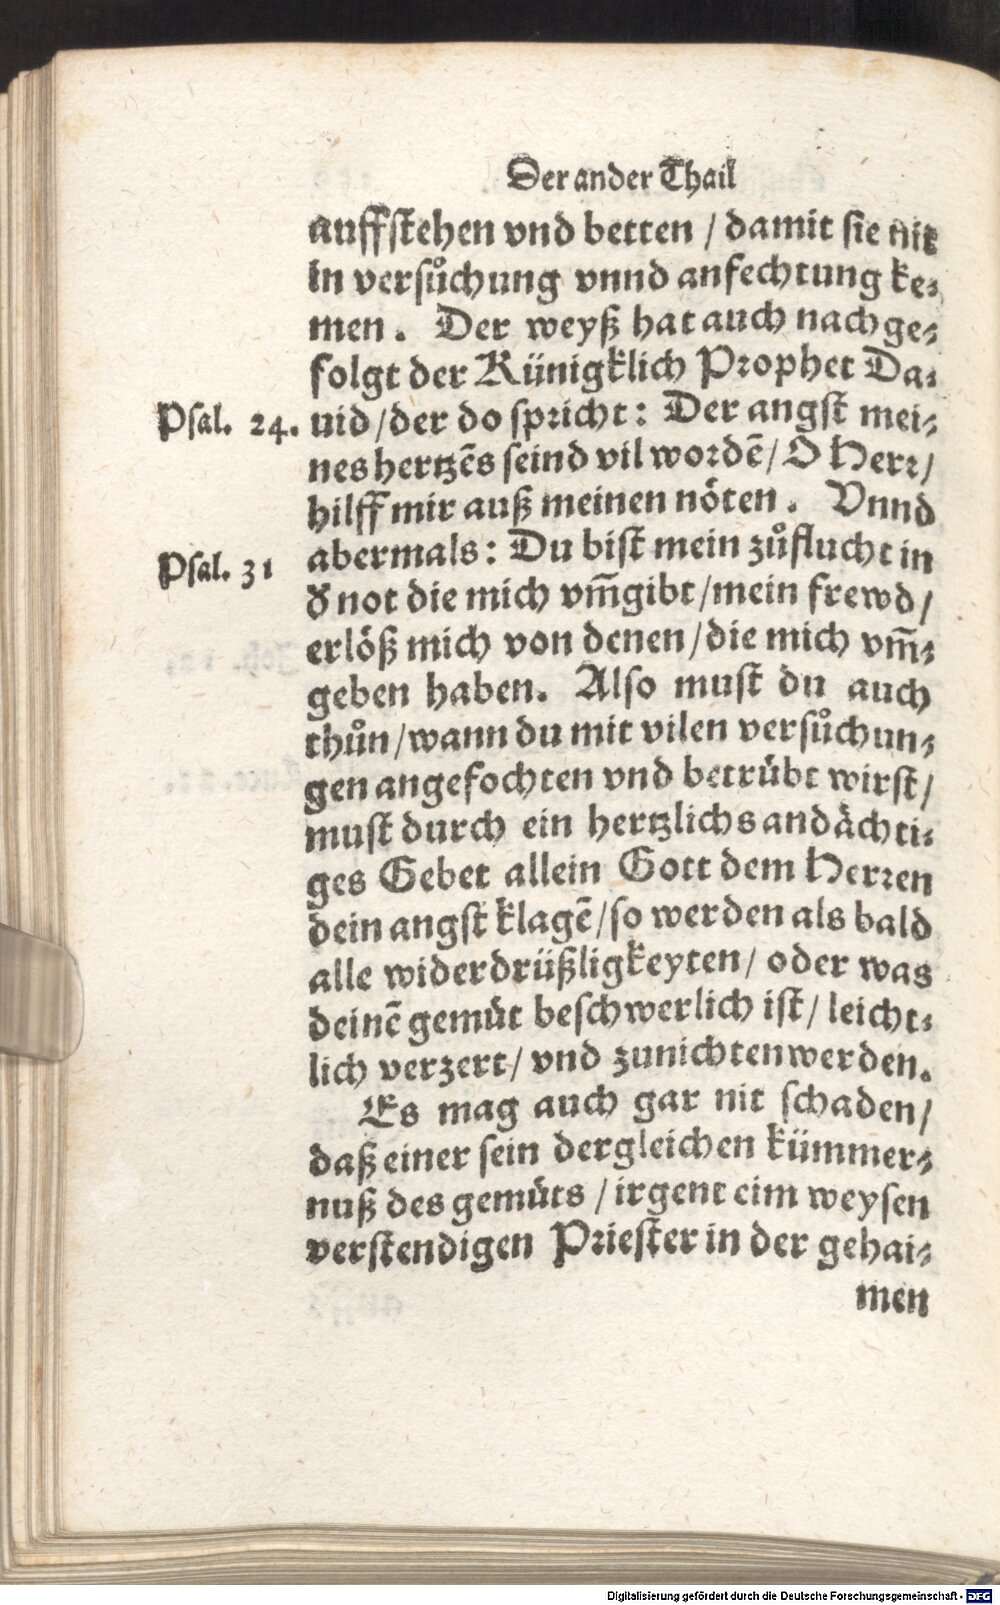 Der ander Thail
auffstehen vnd betten / damit sie nit
in versůchung vnnd anfechtung ke⸗
men. Der weyß hat auch nachge⸗
folgt der Künigklich Prophet Da⸗
Psal. 24. uid / der do spricht: Der angst mei⸗
nes hertzēs seind vil wordē / O Herr /
hilff mir auß meinen nöten. Vnnd
Psal. 31 abermals: Du bist mein zůflucht in
d' not die mich vm̄gibt / mein frewd /
erlöß mich von denen / die mich vm̄⸗
geben haben. Also must du auch
thůn / wann du mit vilen versůchun⸗
gen angefochten vnd betrübt wirst /
must durch ein hertzlichs andächti⸗
ges Gebet allein Gott dem Herren
dein angst klagē / so werden als bald
alle widerdrüßligkeyten / oder was
deinē gemüt beschwerlich ist / leicht⸗
lich verzert / vnd zunichten werden.
Es mag auch gar nit schaden /
daß einer sein dergleichen kümmer⸗
nuß des gemüts / irgent eim weysen
verstendigen Priester in der gehai⸗
men
Digitalisierung gefördert durch die Deutsche Forschungsgemeinschaft - DFG